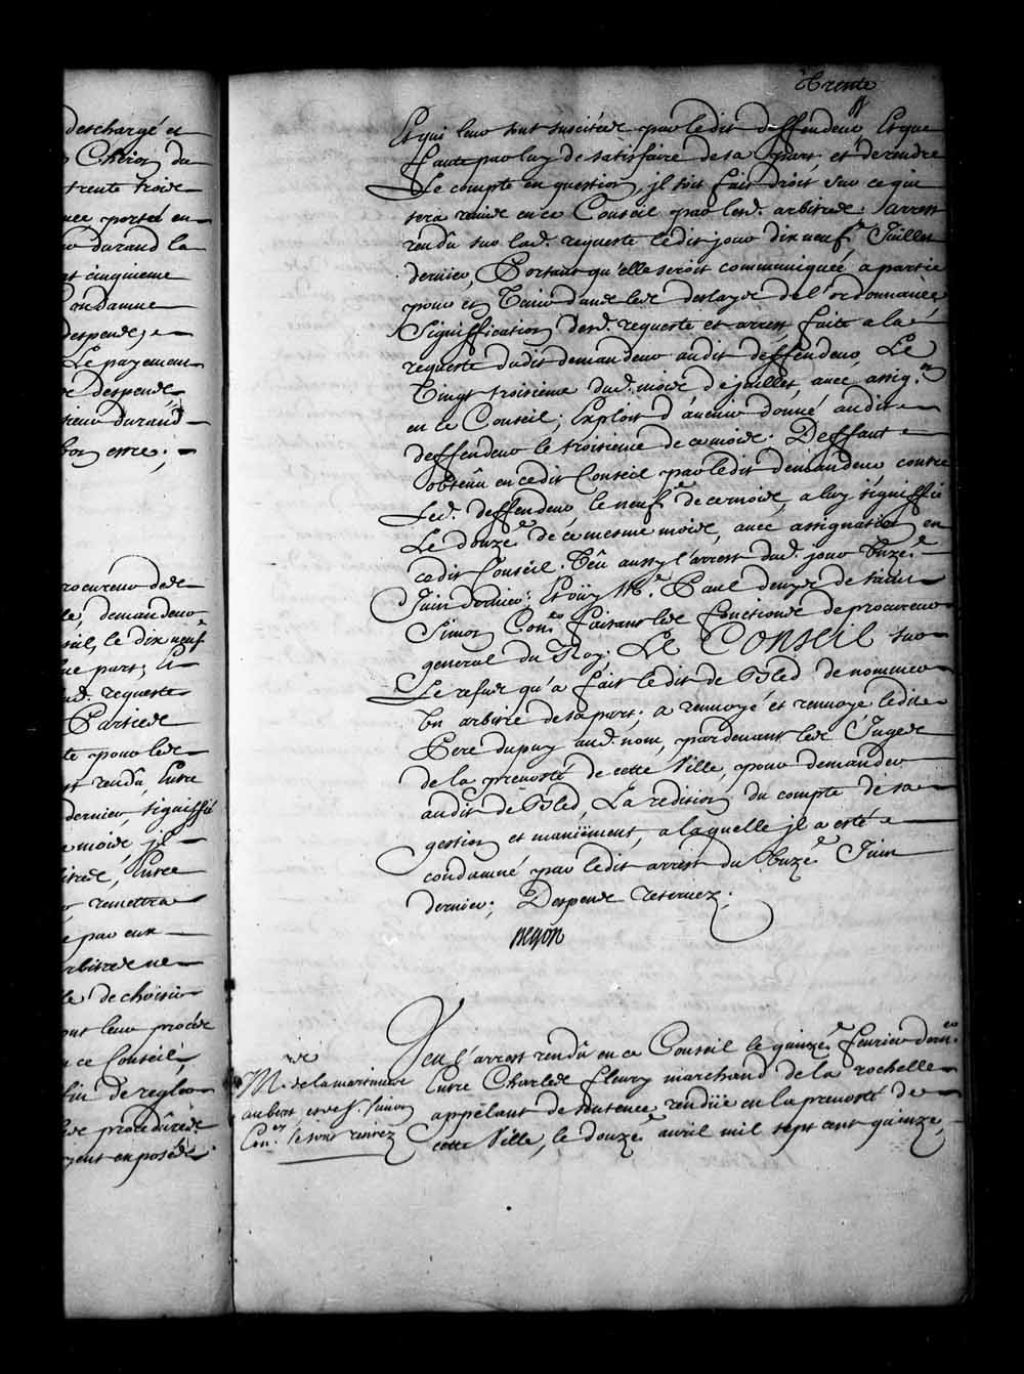 deschargé et
Cheron du
trente trois
uee portée en
durand la
cinquieme
Condamne
despens; e
Le payement
despens
sieur durand
bon erre;
rocureur des
le, demandeur
seil, le dix neuf
ne part; Et
ud. requeste
Parties
te pour les
st rendû, Entre
dernier, signiffié
e mois, jl
bitres, Entre
remettra
e par eux
rbitres ne
le de choisir
ont leur procés
ce Conseil,
fin de regler
les procedures
yent exposés
Trente
Et qui leur sont suscitées par ledit deffendeur Et que
faute par luy de satisfaire de sa part, et de rendre
Le compte en question, jl soit fait droit sur ce qui
sera remis en ce Conseil par lesd. arbitres: arrest
rendû sur lad. requeste ledit jour dix neuf.e Juillet
dernier, Portant qu'elle seroit communiquée a partie
pour et Venir dans les deslays de l'ordonnance
Signiffication desd. requeste et arrest faite a la
requeste dudit demandeur audit deffendeur, Le
Vingt troisieme dud. mois de juillet, avec assig.on
en ce Conseil; Exploit d'avenir donné audit
deffendeur le troisieme de ce mois. Deffaut
obtenû en cedit Conseil par ledit demandeur contre
Led. deffendeur le neuf.e de ce mois, a luy signiffié
Le douze.e de ce mesme mois, avec assignation en
cedit Conseil. Vêu aussy l'arrest dud. jour Unze.e
Juin dernier; Et oüy M.e Paul denys de saint
Simon Con.er faisant les fonctions de procureur
general du Roy. LE CONSEIL sur
Le refus qu'a fait ledit de Bled de nommer
Un arbitre de sa part; a renvoyé et renvoye ledit
Pere dupuy aud. nom, pardevant les Juges
de la prevosté de cette Ville, pour demander
audit de Bled, La redition du compte de sa
gestion et maniëment, a laquelle jl a esté
condamné par ledit arrest du Unze.e Juin
dernier; Despens reservez;
Begon
Veu l'arrest rendû en ce Conseil le quinze.e fevrier dern.er
Entre Charles fleury marchand de la rochelle
appëlant de sentence rendüe en la prevosté de
cette Ville, le douze.e avril mil sept cent quinze,
M.rs de la martiniere
aubert et de S.t Simon
Con.ers se sont retirez